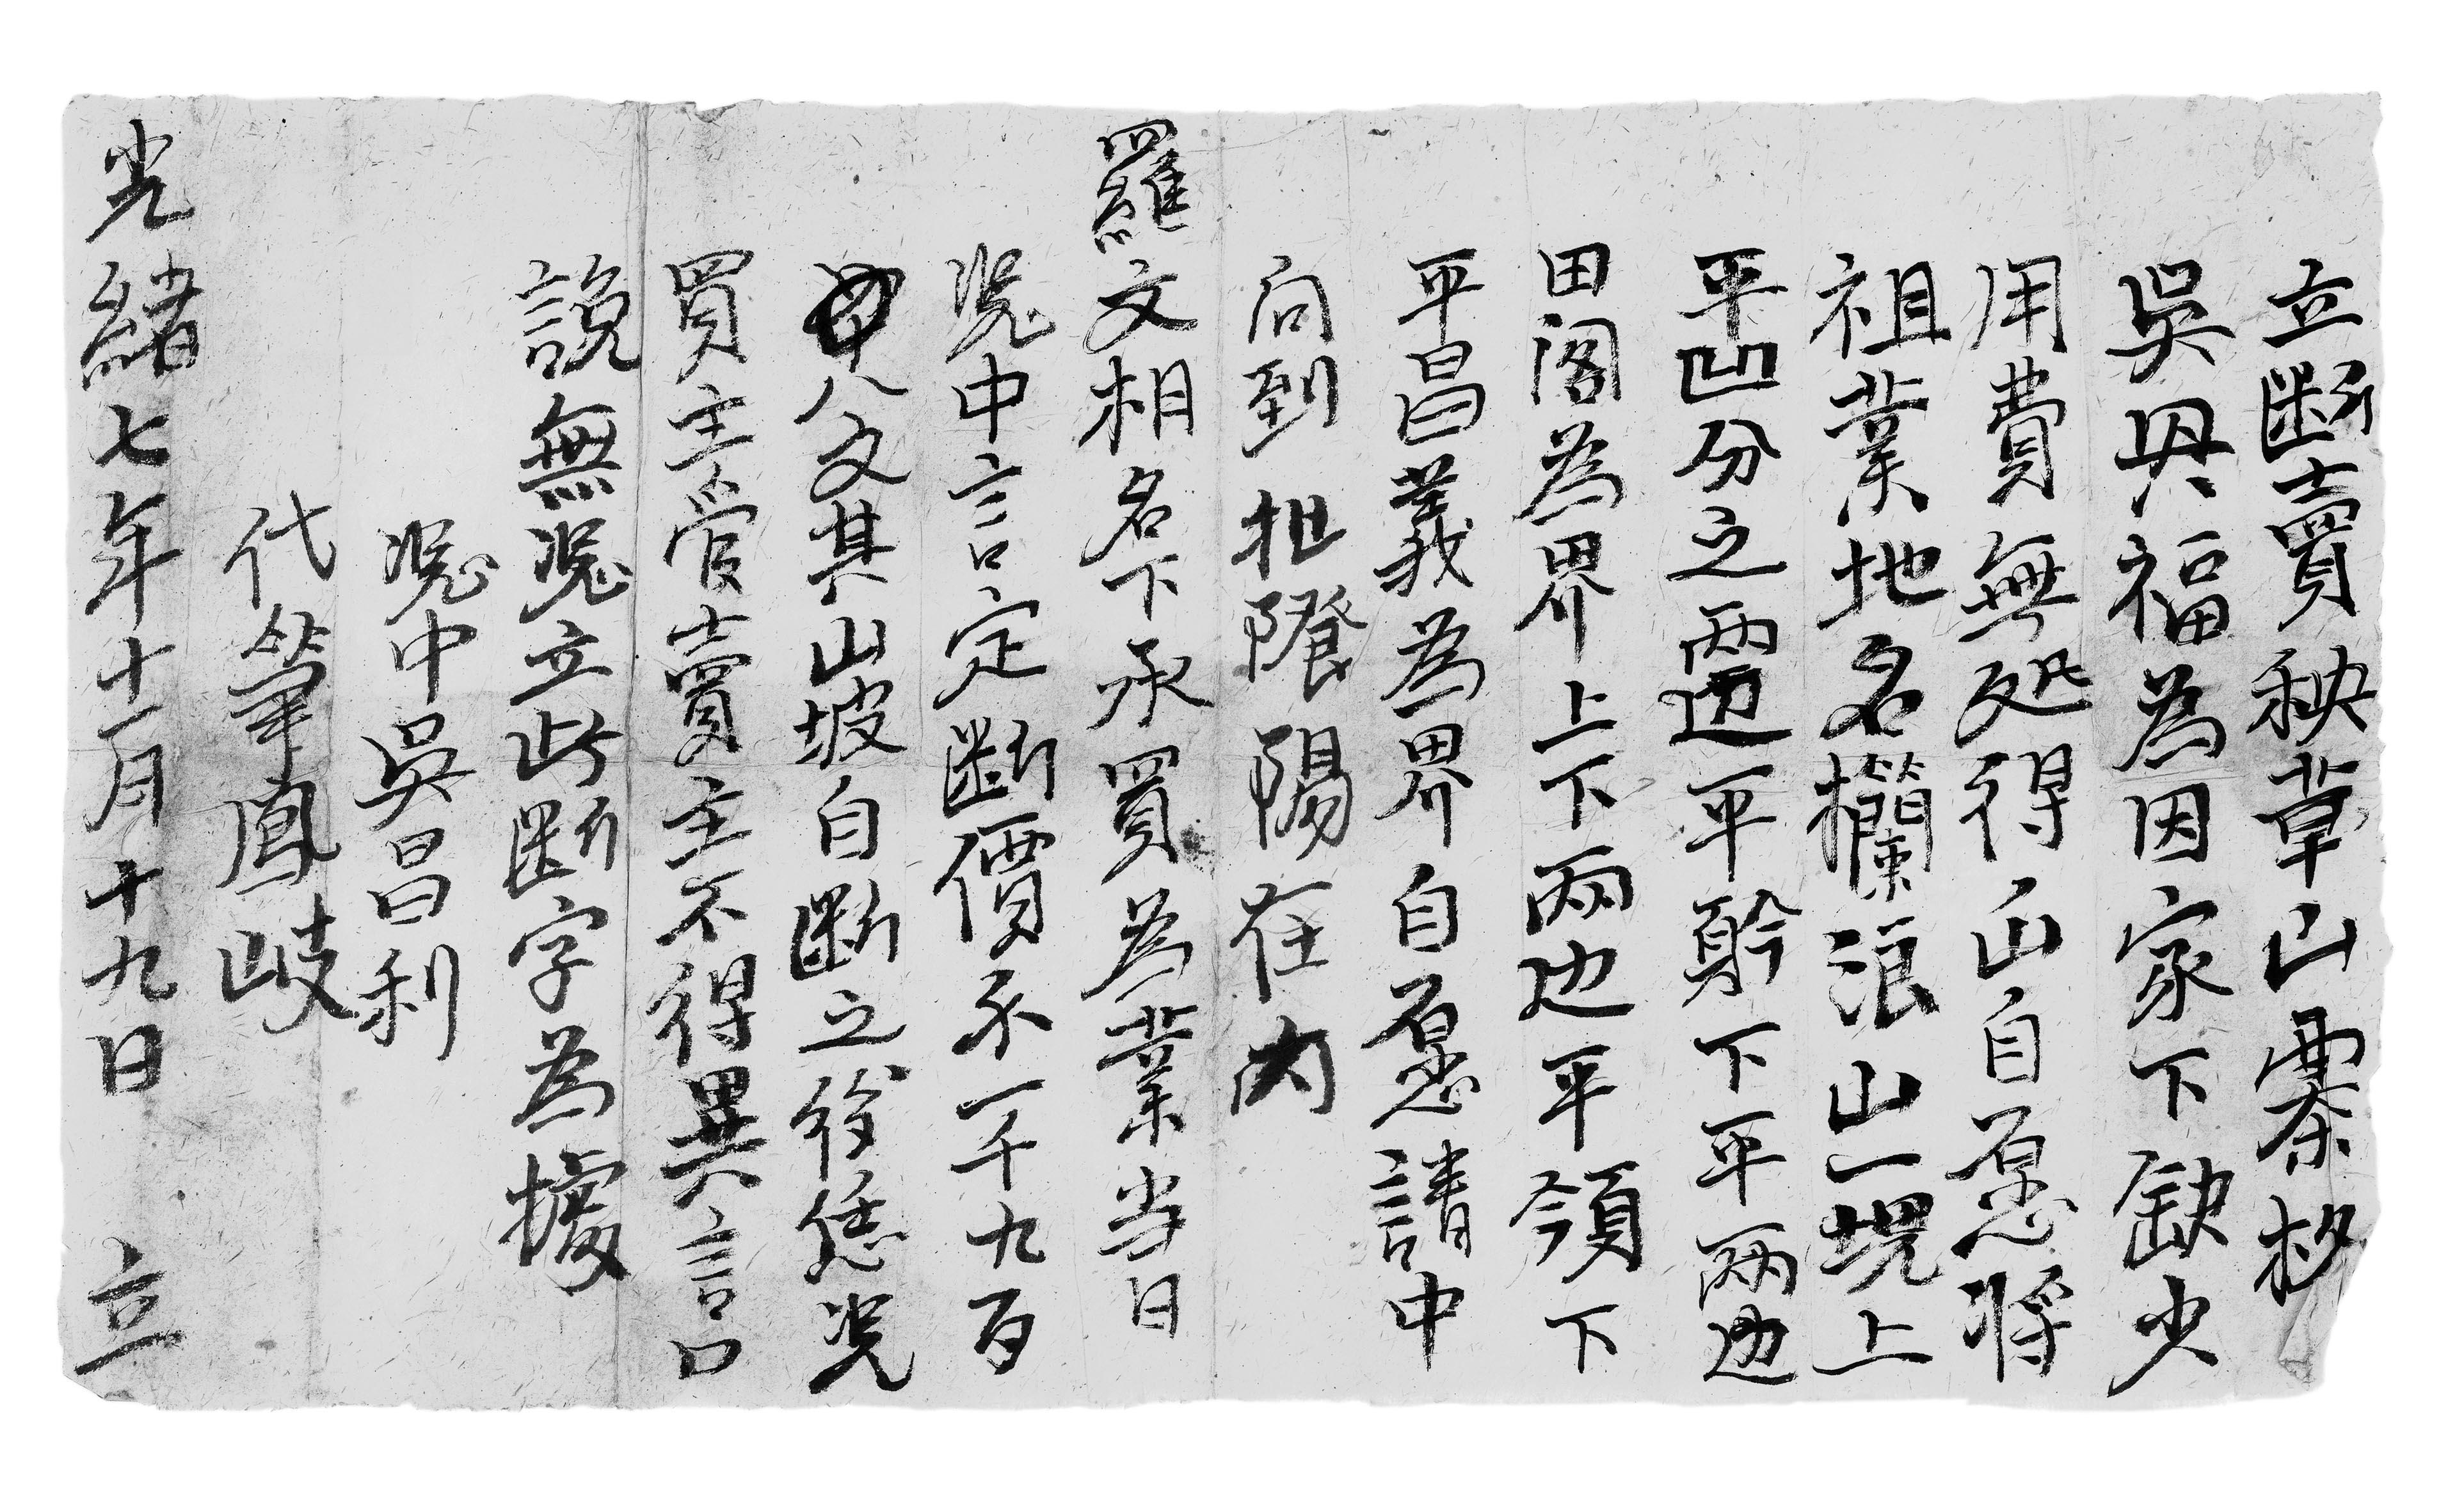 立断賣秧草山寨杉
吳興福為因家下缺少
用費無処得出自愿将
祖業地名欄浪山一塊上
平凹分之兩边平幹下平兩边
田阁為界上下兩边平領下
平昌義為界自愿請中
向到扯隂陽在内
羅文相名下承買為業当日
凴中言定断價禾一千九百
八文其山坡自断之後恁凴
買主管賣主不得異言口
説無凴立此断字為據
凴中吳昌利
代筆鳳岐
光緒七年十一月十九日 立